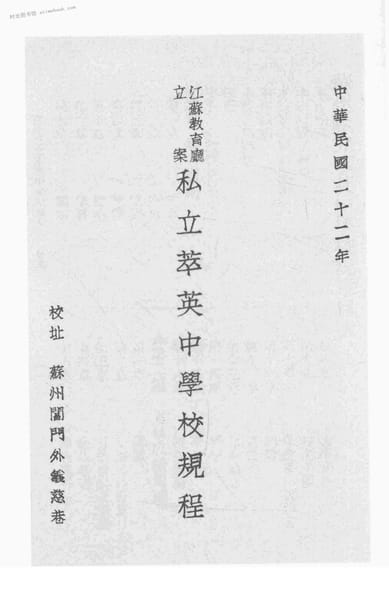 中華民國二十二年
江蘇教育廳立案
私立萃英中學校規程
校址 蘇州閶門外義慈巷